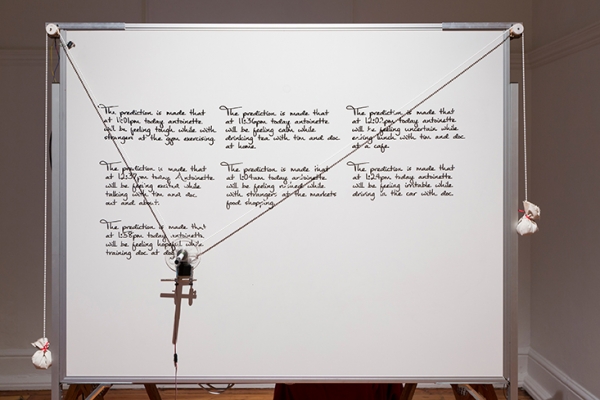 The prediction is made that
at 11:01pm today antoinette
will be feeling tough while with
strangers at the gym exercising.
The prediction is made that
at 11:36pm today antoinette
will be feeling calm while
drinking tea with tim and doc
at home.
The prediction is made that
at 12:03pm today antoinette
will be feeling uncertain while
eating lunch with tim and doc
at a cafe.
The prediction is made that
at 12:37pm today antoinette
will be feeling excited while
talking with tim and doc
out and about.
The prediction is made that
at 1:04am today antoinette
will be feeling while
with strangers at the markets
food shopping.
The prediction is made that
at 1:24pm today antoinette
will be feeling irritable while
driving in the car with doc.
The prediction is made that
at 1:58pm today antoinette
will be feeling hopeful while
training doc at